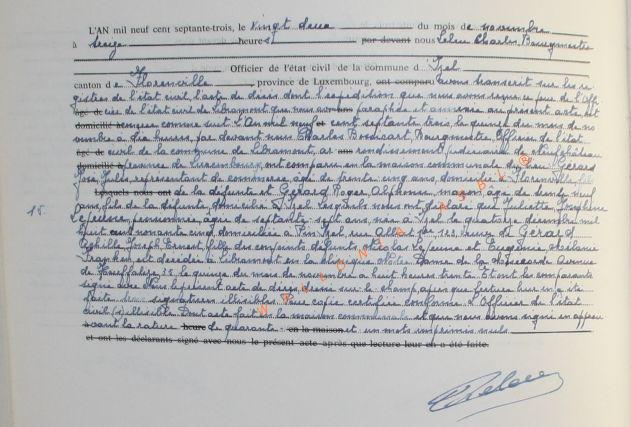 L'AN mil neuf cent septante-trois, le vingt deux du mois de novembre
à treize heures par devant nous Lelou Charles Bourgmestre
Officier de l'état civil de la commune d'Izel
canton de Florenville, province de Luxembourg, ont comparu avons transcrit sur les re
gistres de l'état civil, l'acte de décès dont l'expédition que nous avons reçue ce jour de l'Offi
âgé de cier de l'état civil de Libramont que nous avons paraphée et annexée au présent acte, est
domicilié à conçue comme suit L'An mil neuf et cent septante trois, le quinze du mois de no
vembre à dix heures, par devant nous Charles Bourgmestre Officier de l'état
âgé de civil de la commune de Libramont, ar ans rondissement judiciaire de Neufchâteau
domicilié à province de Luxembourg, ont comparu en la maison communale
José, Jules, représentant de commerce, âgé de trente cinq ans, domicilié à Florenville
Lesquels nous ont de la défunte et Gérard Roger Alphonse, maçon, âgé de neuf
ans, fils de la défunte, domicilié à Izel. Lesquels nous ont déclaré que Juliette Joséphine
Lejeune, pensionnée, âgée de septante sept ans, née à Izel le quatorze décembre mil
huit cent nonante cinq domiciliée à Pin Izel, rue Albert 1er 123, veuve de Gérard
Achille Joseph Ernest, fille des conjoints défunts Nicolas Lejeune et Eugénie
est décédée à Libramont en la clinique Notre Dame de la Avenue
de Houffalize 35 le quinze du mois de novembre à huit heures trente. Et ont les comparants
signé avec nous le présent acte de décès dressé sur le champ, après que lecture leur en a été
faite. trois signatures illisibles. Pour copie certifiée conforme L'Officier de l'état
civil (s) illisible. Dont acte fait en la maison communale et que nous avons signé en approu
vant la rature heure de quarante en la maison et un mots imprimés nuls
et ont les déclarants signé avec nous le présent acte après que lecture leur en a été faite.
15.
WALLONIA ASBL